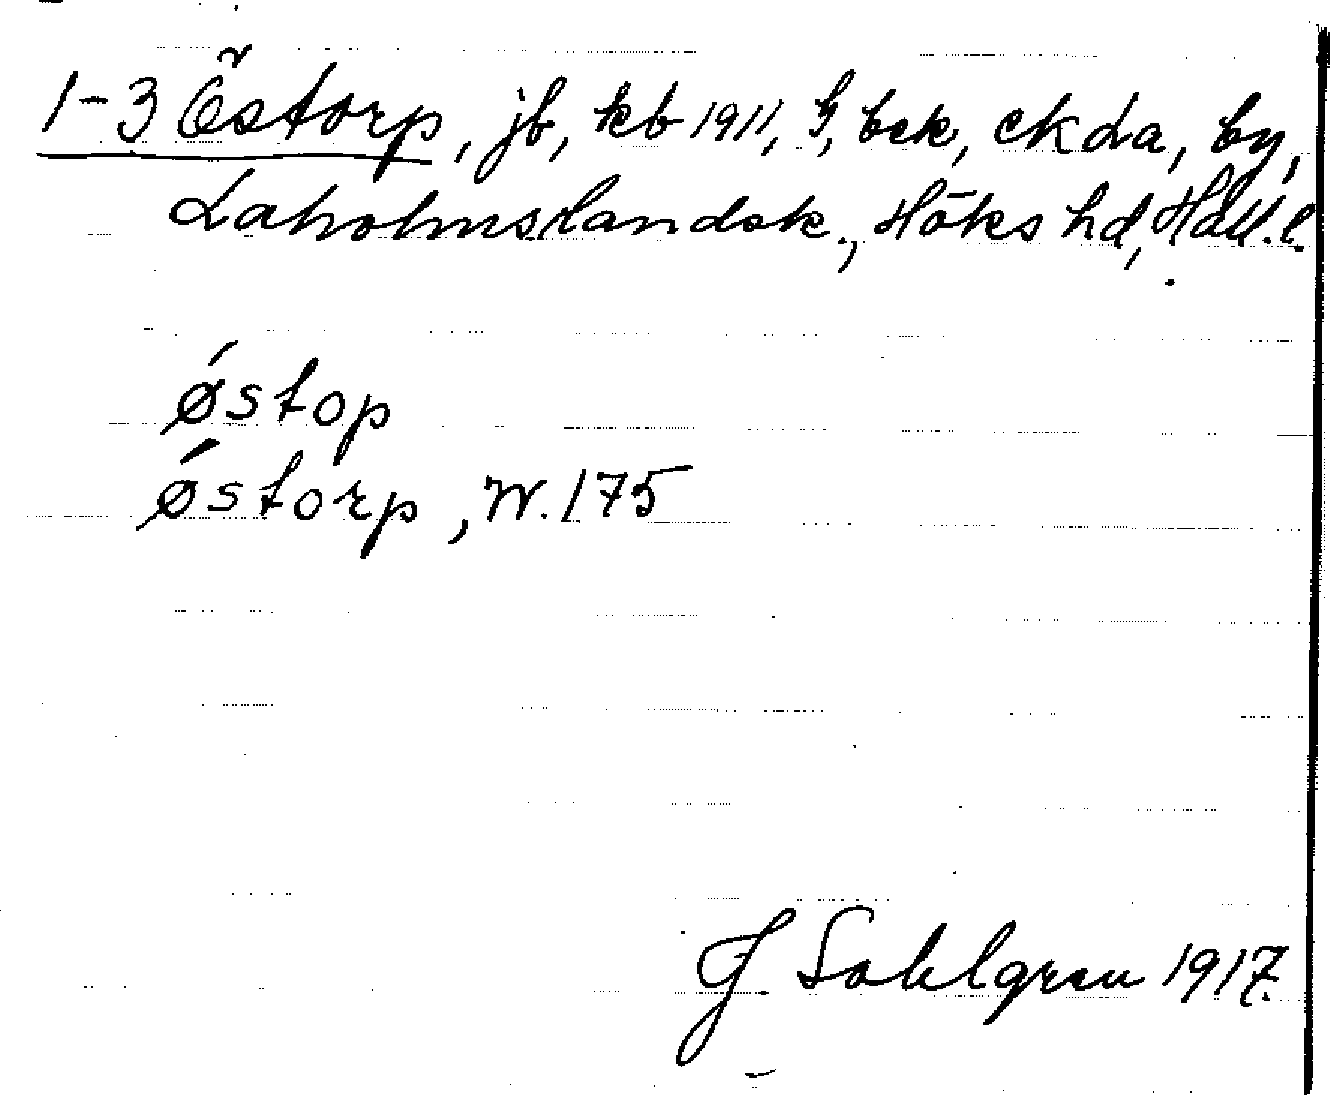 1-3 Östorp, jb, kb 1911, G, bek, ekda, by,
Laholmslandsk., Höks hd, Hall. l.
ǿstop
ǿstorp, W. 175
J Sahlgren 1917.